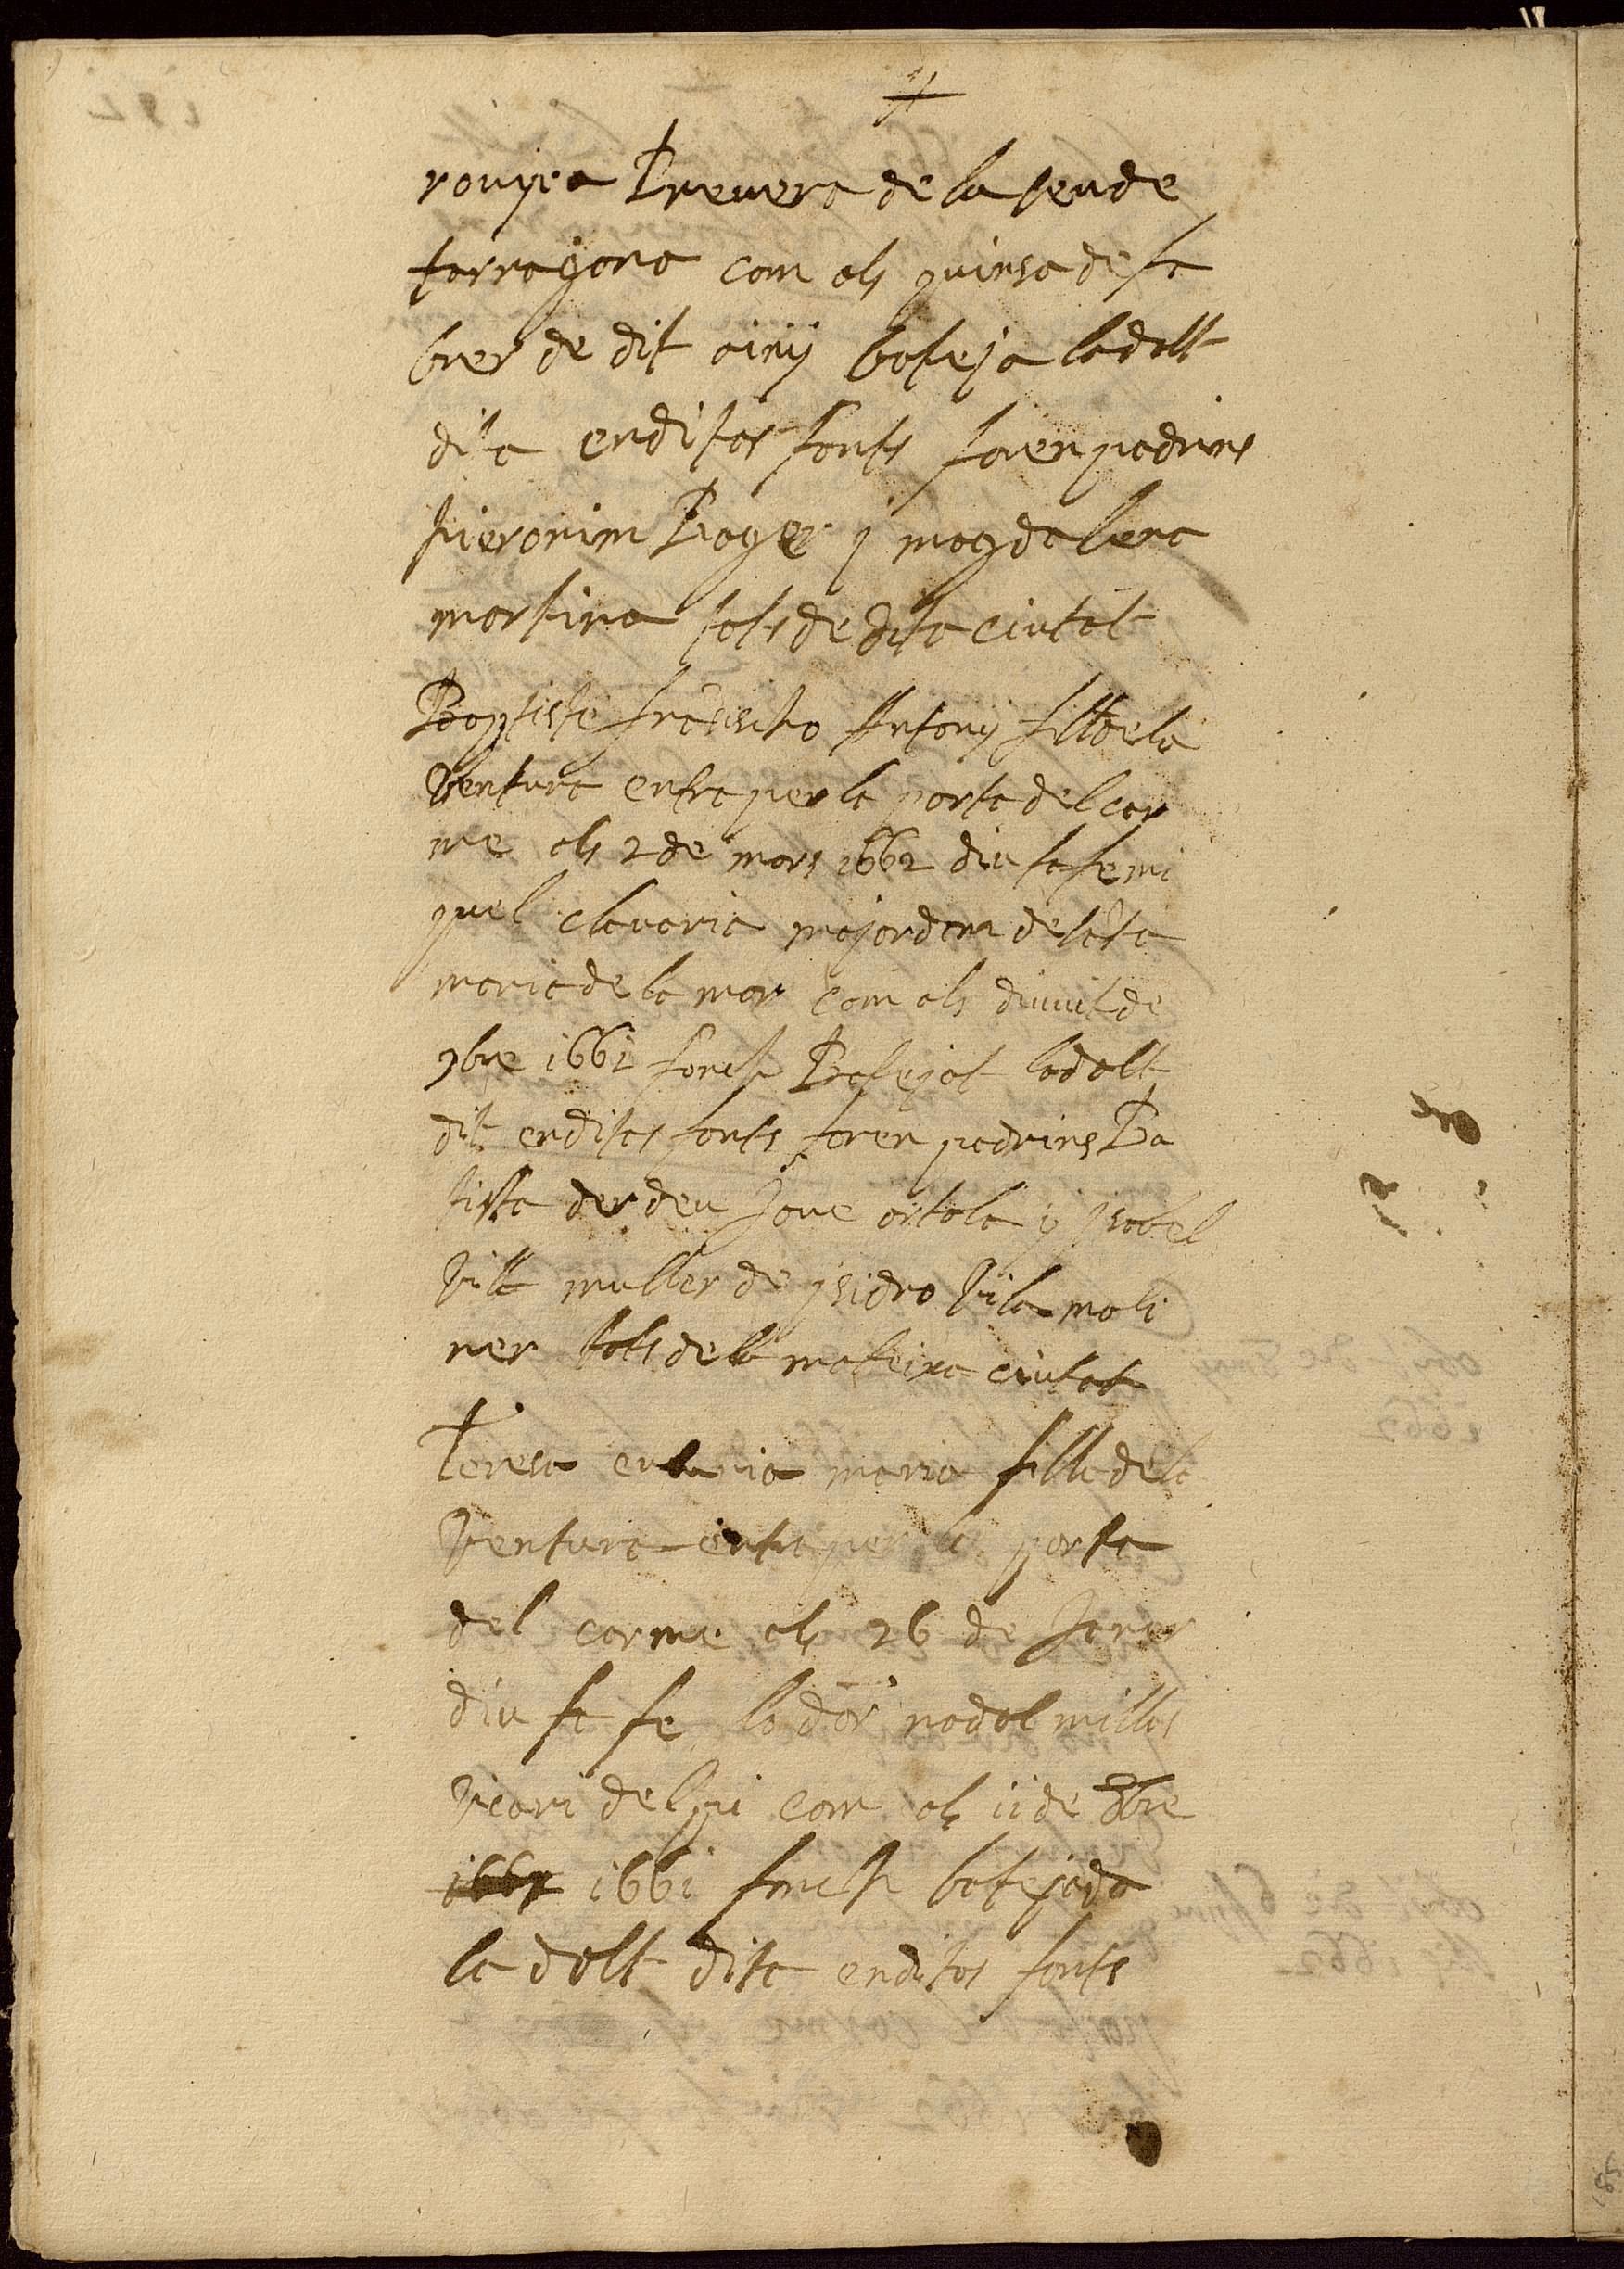 rouyra Prevere de la seu de
tarragona com als quinse de fe
brer de dit ainy bateja la dalt
dita en ditas fonts foren padrins
hieronim Roger y magdalena
martina tots de dita ciutat
Baptiste frãsischo Antony fill de la
Ventura entra per la porta del car
me als 2 de mars 1662 diu sa fe mi
quel clavaria majordom de sãta
maria de la mar com als divuit de
9bre 1661 fonch Batejat lo dalt
dit en ditas fonts foren padrins Ba
tista derdeu Jove ortola y ysabel
Vila muller de ysidro Vila moli
ner tots de la mateixa ciutat
Teresa eularia maria filla de la
Ventura entra per la porta
del carme als 26 de Janer
diu sa fe lo dor nadal millas
Vicari del pi com als 11 de 8bre
1661 fonch batejada
la dalt dita en ditas fonts